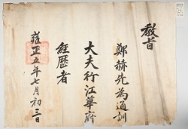 敎旨
鄭稀先為通訓
大夫行江華府
經歷者
雍正五年七月初三日